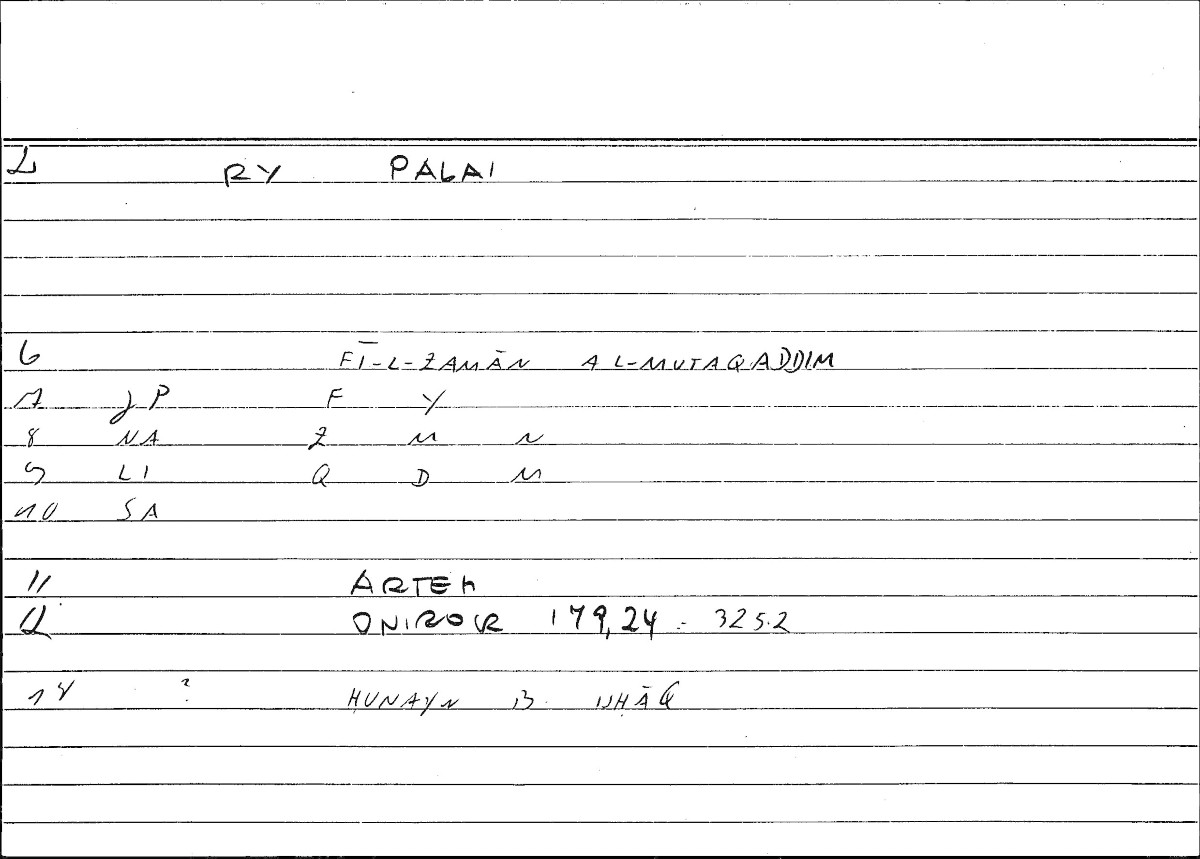 2 RY PALAI
6 FĪ-L-ZAMĀN AL-MUTAQADDIM
7 JP F Y
8 NA Z M N
9 LI Q D M
10 SA
11 ARTEM
12 ONIROCR 179,24 = 325.2
14 ? ḤUNAYN B. ISḤĀQ